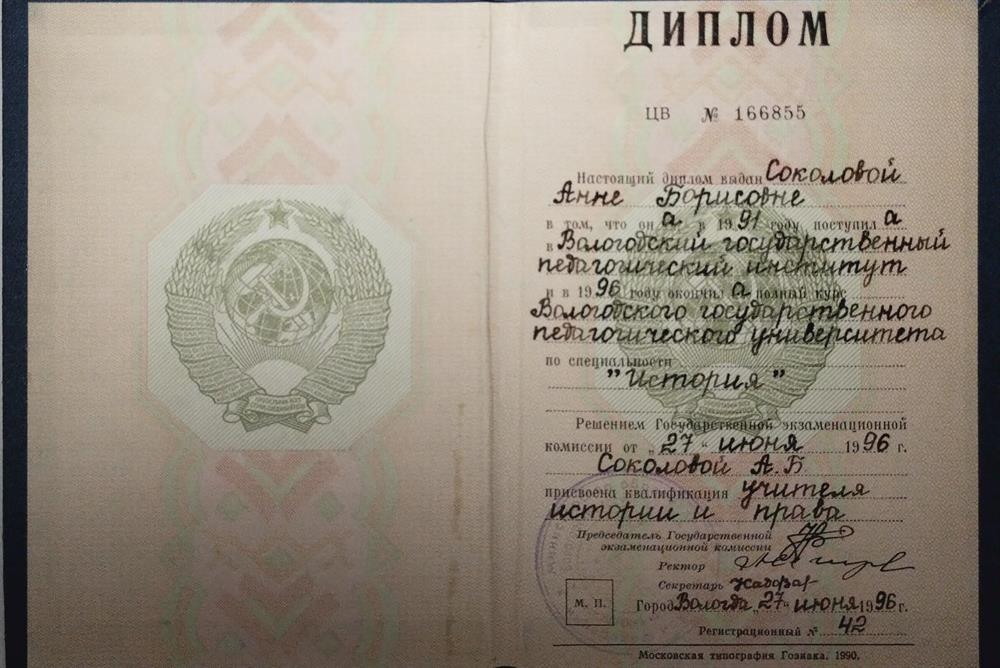 ДИПЛОМ
ЦВ № 166855
Настоящий диплом выдан Соколовой
Анне Борисовне
в том, что он а в 1991 году поступил а
в Вологодский государственный
педагогический институт
и в 1996 году окончил а полный курс
Вологодского государственного
педагогического университета
по специальности
"История"
Решением Государственной экзаменационной
комиссии от „27“ июня 1996 г.
Соколовой А.Б
присвоена квалификация учителя
истории и права
Председатель Государственной
экзаменационной комиссии
Ректор
Секретарь
М. П.
Город Вологда „27“ июня 1996 г.
Регистрационный № 42
Московская типография Гознака. 1990.